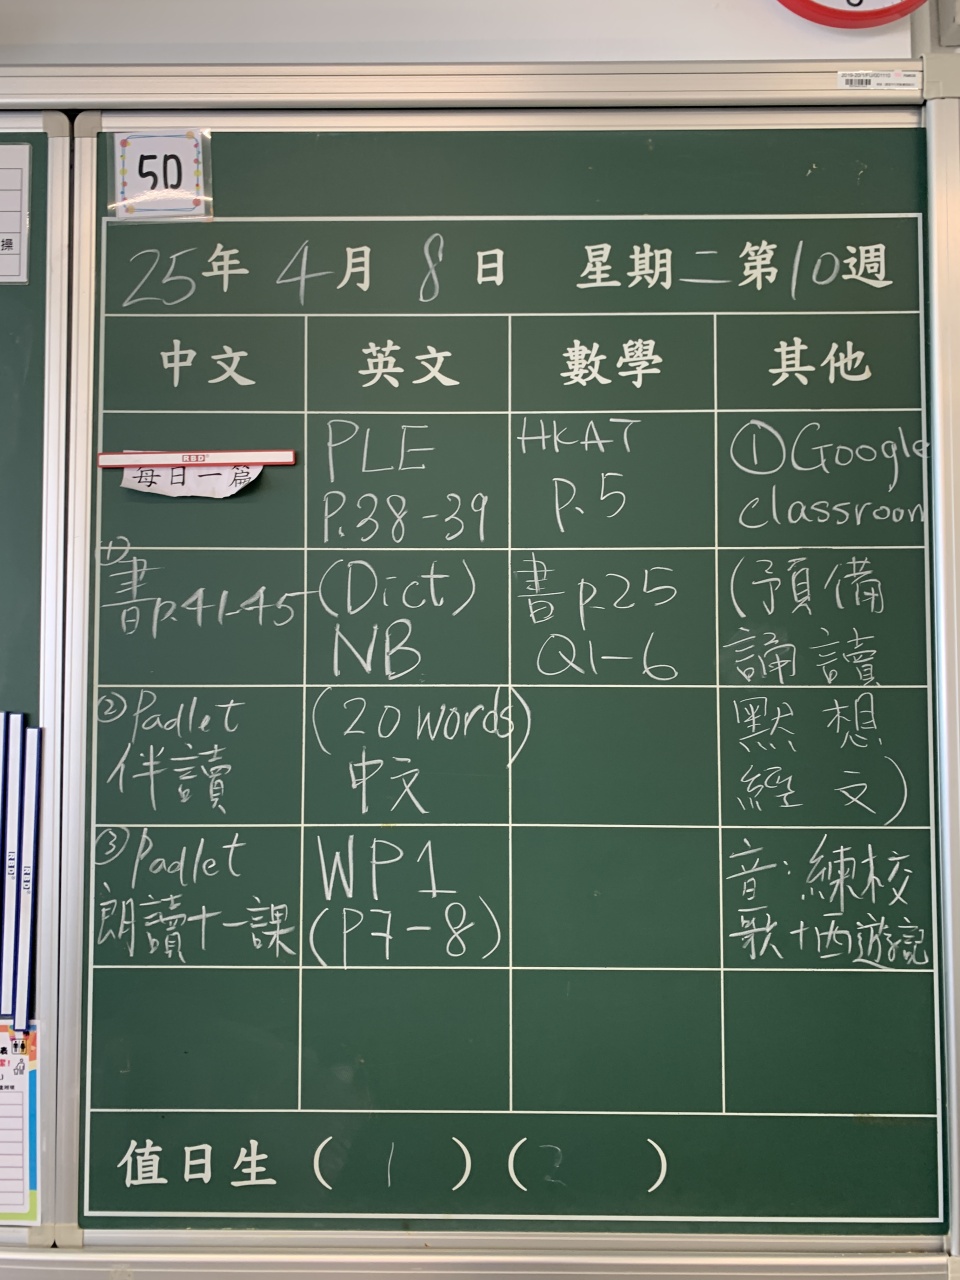 5D
25年 4月 8日 星期二第10週
中文 英文 數學 其他
RBD
每日一篇
①書p.41-45
②Padlet
伴讀
③Padlet
朗讀十一課
PLE
P.38-39
(Dict)
NB
(20 words)
中文
WP1
(P7-8)
HKAT
p.5
書p.25
Q1-6
①Google
classroom
(預備
誦讀
默想
經文)
音:練校
歌+西遊記
值日生 (1) (2)
操